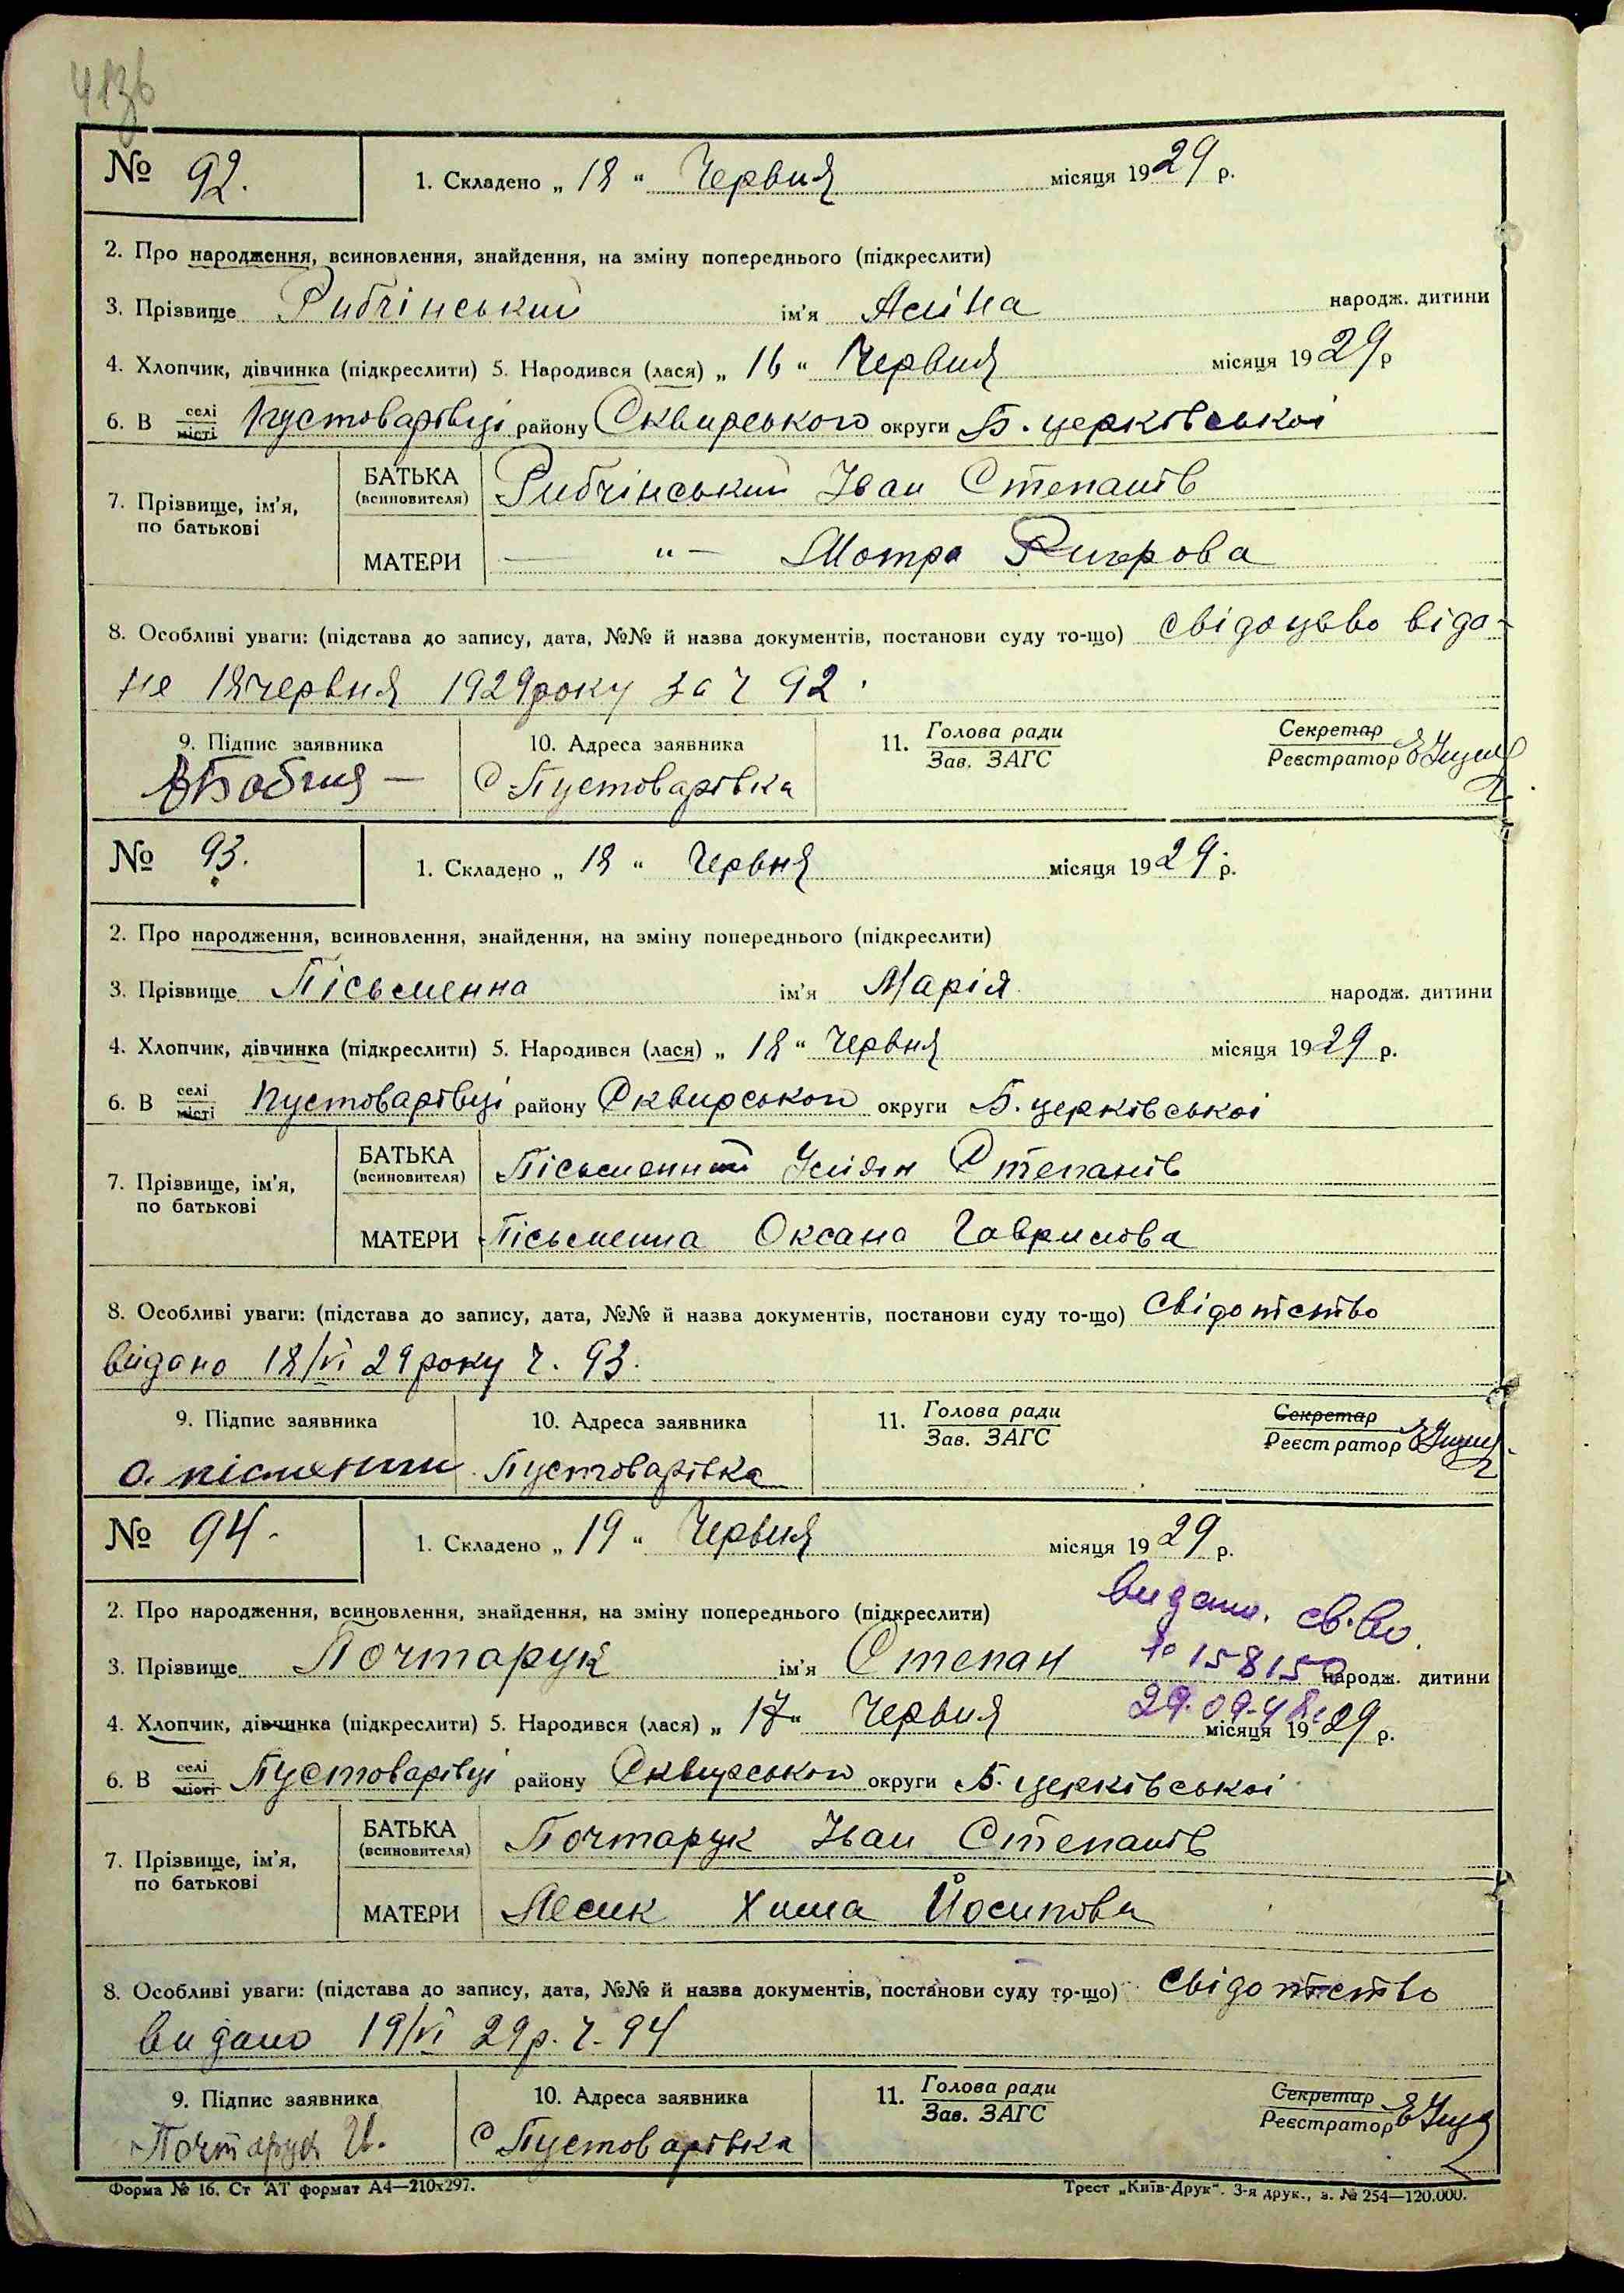 № 92.
1. Складено „ 18 “ Червня місяця 1929 р.
2. Про народження, всиновлення, знайдення, на зміну попереднього (підкреслити)
3. Прізвище Рибчінський ім'я Аліна народж. дитини
4. Хлопчик, дівчинка (підкреслити) 5. Народився (лася) „ 16 “ Червня місяця 1929 р
6. В селі місті Пустоварівці району Сквирського округи Б. церківської
7. Прізвище, ім'я, по батькові
БАТЬКА (всиновителя) Рибчінський Іван Степанів
МАТЕРИ — „ — Мотра
8. Особливі уваги: (підстава до запису, дата, №№ й назва документів, постанови суду то-що) Свідоцьво віда-
не 18 червня 1929 року за ч 92.
9. Підпис заявника
10. Адреса заявника С Пустоварівка
11. Голова ради Зав. ЗАГС
Секретар Реєстратор
№ 93.
1. Складено „ 18 “ Червня місяця 1929 р.
2. Про народження, всиновлення, знайдення, на зміну попереднього (підкреслити)
3. Прізвище Пісьменна ім'я Марія народж. дитини
4. Хлопчик, дівчинка (підкреслити) 5. Народився (лася) „ 18 “ Червня місяця 1929 р.
6. В селі місті Пустоварівці району Сквирського округи Б. церківської
7. Прізвище, ім'я, по батькові
БАТЬКА (всиновителя) Пісьменний Улян Степанів
МАТЕРИ Пісьменна Оксана Гаврилова
8. Особливі уваги: (підстава до запису, дата, №№ й назва документів, постанови суду то-що) Свідотство
видано 18/VI 29 року ч. 93.
9. Підпис заявника
10. Адреса заявника Пустоварівка
11. Голова ради Зав. ЗАГС
Секретар Реєстратор
№ 94.
1. Складено „ 19 “ Червня місяця 1929 р.
видано. св.во.
2. Про народження, всиновлення, знайдення, на зміну попереднього (підкреслити)
3. Прізвище Почтарук ім'я Степан народж. дитини
158150
29.09.48
4. Хлопчик, дівчинка (підкреслити) 5. Народився (лася) „ 17 “ Червня місяця 1929 р.
6. В селі місті Пустоварівці району Сквирського округи Б. церківської
7. Прізвище, ім'я, по батькові
БАТЬКА (всиновителя) Почтарук Іван Степанів
МАТЕРИ Лесик Хима Йосипова
8. Особливі уваги: (підстава до запису, дата, №№ й назва документів, постанови суду то-що) Свідотство
видано 19/VI 29 р. ч. 94
9. Підпис заявника Почтарук И.
10. Адреса заявника С Пустоварівка
11. Голова ради Зав. ЗАГС
Секретар Реєстратор
Форма № 16. Ст АТ формат А4—210х297.
Трест „Київ-Друк“. 3-я друк., з. № 254—120.000.